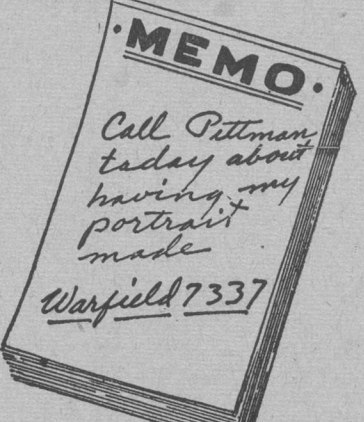 • MEMO •
Call Pittman
today about
having my
portrait
made
Warfield 7337